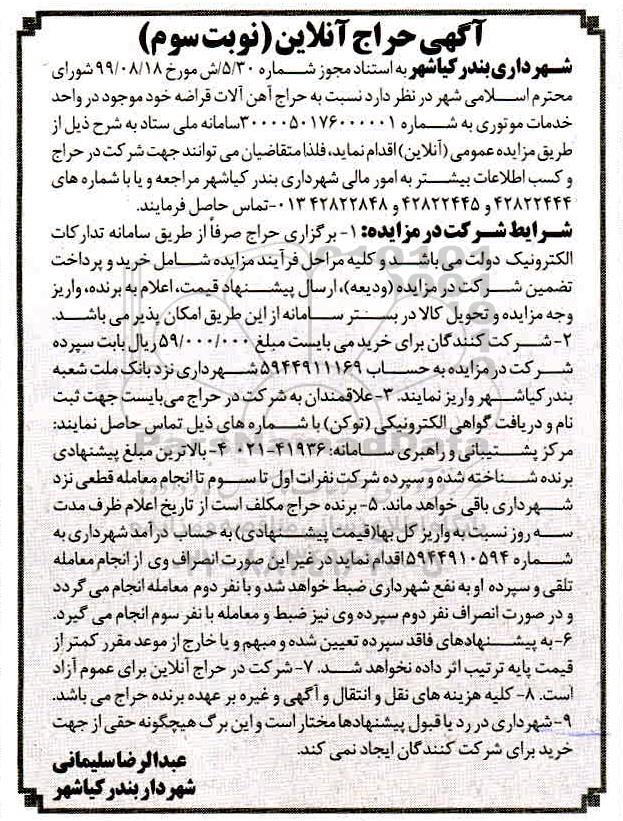 آگهی حراج آنلاین (نوبت سوم)
شهرداری بندر کیاشهر به استناد مجوز شماره ۵/۳۰/ش مورخ ۹۹/۰۸/۱۸ شورای
محترم اسلامی شهر در نظر دارد نسبت به حراج آهن آلات قراضه خود موجود در واحد
خدمات موتوری به شماره ۳۰۰۰۰۵۰۱۷۶۰۰۰۰۰۱سامانه ملی ستاد به شرح ذیل از
طریق مزایده عمومی (آنلاین) اقدام نماید، فلذا متقاضیان می توانند جهت شرکت در حراج
و کسب اطلاعات بیشتر به امور مالی شهرداری بندر کیاشهر مراجعه و یا با شماره های
۴۲۸۲۲۴۴۴ و ۴۲۸۲۲۴۴۵ و ۴۲۸۲۲۸۴۸ ۰۱۳-تماس حاصل فرمایند.
شرایط شرکت در مزایده: ۱- برگزاری حراج صرفاً از طریق سامانه تدارکات
الکترونیک دولت می باشد و کلیه مراحل فرآیند مزایده شامل خرید و پرداخت
تضمین شرکت در مزایده (ودیعه)، ارسال پیشنهاد قیمت، اعلام به برنده، واریز
وجه مزایده و تحویل کالا در بستر سامانه از این طریق امکان پذیر می باشد.
۲-شرکت کنندگان برای خرید می بایست مبلغ ۵۹/۰۰۰/۰۰۰ ریال بابت سپرده
شرکت در مزایده به حساب ۵۹۴۴۹۱۱۱۶۹ شهرداری نزد بانک ملت شعبه
بندر کیاشهر واریز نمایند. ۳-علاقمندان به شرکت در حراج می بایست جهت ثبت
نام و دریافت گواهی الکترونیکی (توکن) با شماره های ذیل تماس حاصل نمایند:
مرکز پشتیبانی و راهبری سامانه: ۴۱۹۳۶-۰۲۱ ۴- بالاترین مبلغ پیشنهادی
برنده شناخته شده و سپرده شرکت نفرات اول تا سوم تا انجام معامله قطعی نزد
شهرداری باقی خواهد ماند. ۵- برنده حراج مکلف است از تاریخ اعلام ظرف مدت
سه روز نسبت به واریز کل بها(قیمت پیشنهادی) به حساب درآمد شهرداری به
شماره ۵۹۴۴۹۱۰۵۹۴ اقدام نماید در غیر این صورت انصراف وی از انجام معامله
تلقی و سپرده او به نفع شهرداری ضبط خواهد شد و با نفر دوم معامله انجام می گردد
و در صورت انصراف نفر دوم سپرده وی نیز ضبط و معامله با نفر سوم انجام می گیرد.
۶-به پیشنهادهای فاقد سپرده تعیین شده و مبهم و یا خارج از موعد مقرر کمتر از
قیمت پایه ترتیب اثر داده نخواهد شد. ۷-شرکت در حراج آنلاین برای عموم آزاد
است. ۸- کلیه هزینه های نقل و انتقال و آگهی و غیره بر عهده برنده حراج می باشد.
۹-شهرداری در رد یا قبول پیشنهادها مختار است و این برگ هیچگونه حقی از جهت
خرید برای شرکت کنندگان ایجاد نمی کند.
عبدالرضا سلیمانی
شهردار بندر کیاشهر
ParsNamadData